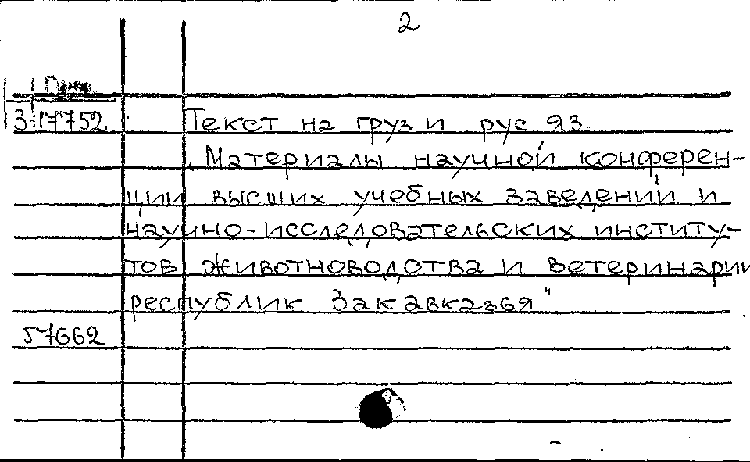 2
3-17752 Текст на груз и рус яз.
„Материалы научной конферен-
ции высших учебных заведений и
научно-исследовательских институ-
тов животноводства и ветеринарии
республик Закавказья"
57662